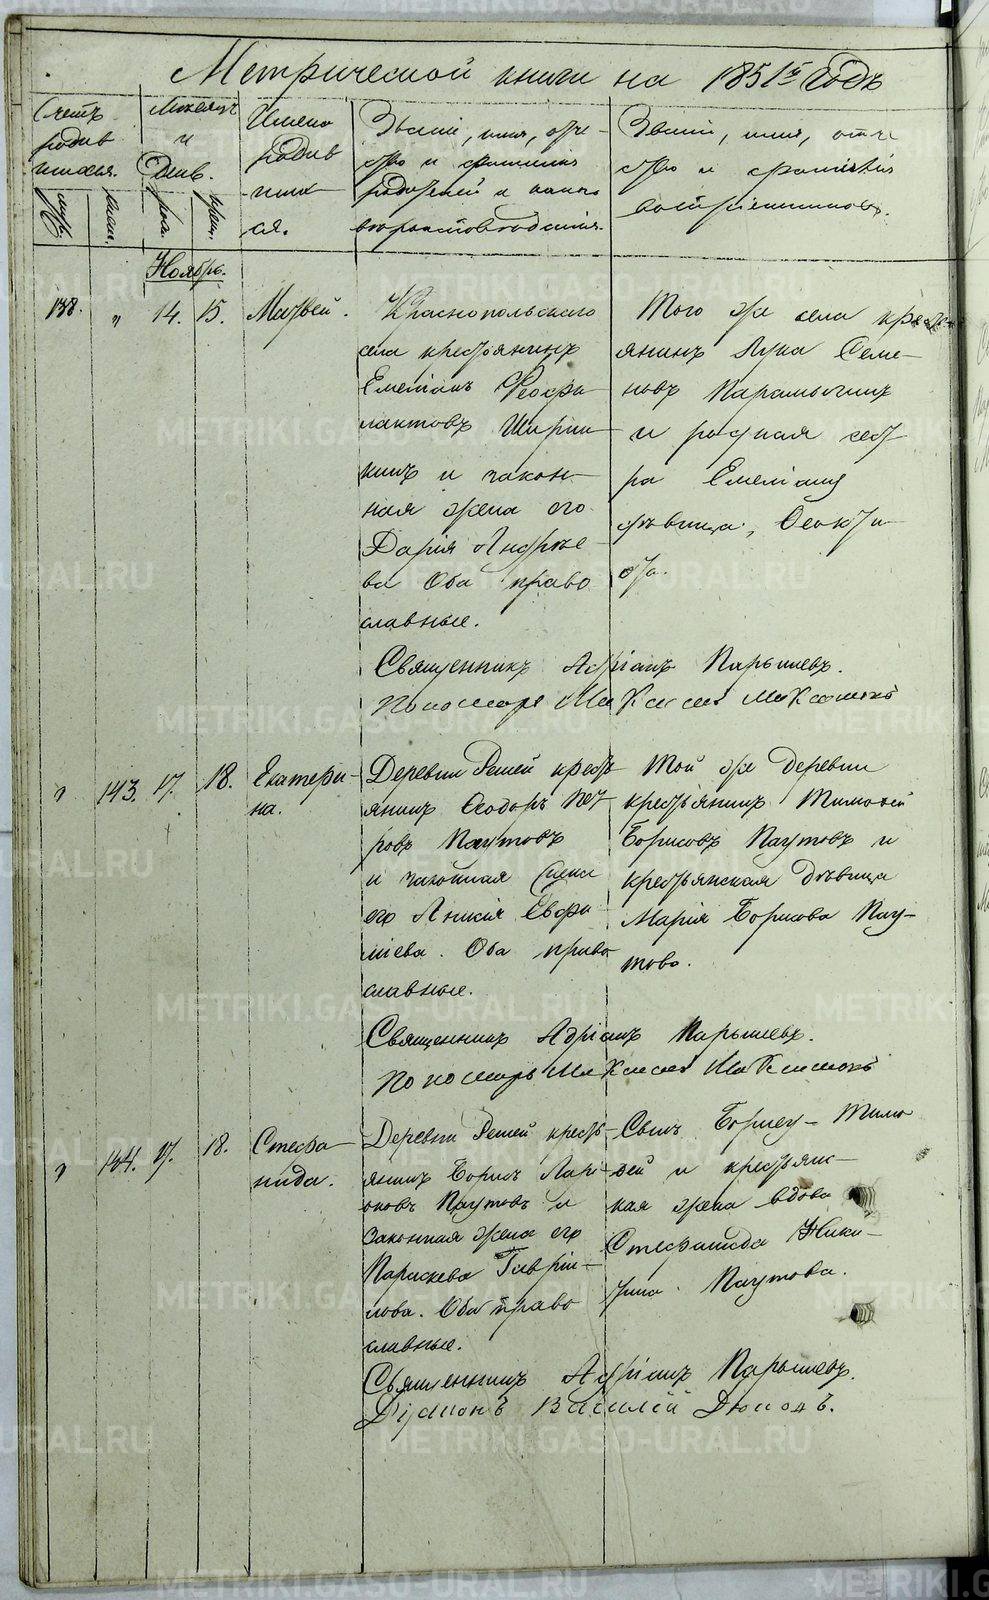 Метрической книги на 1851й годъ
Счетъ родившихся.
муж.
жен.
Месяцъ и День.
рож.
крещ.
Имена родившихся.
Званіе, имя, отчество и фамилія родителей и какого вероисповеданія.
Званіе, имя, отчество и фамилія воспріемниковъ.
Ноябрь.
138. " 14. 15. Матвей.
Краснопольскаго
села крестьянинъ
Емелианъ Феофи-
лактовъ Ширин-
кинъ и закон-
ная жена его
Дарія Андрее-
ва Оба право
славные.
Того же села кресть-
янинъ Лука Семе-
новъ
и родная сест-
ра Емеліана
девица, Феокти-
ста.
Священникъ Адріанъ Парышевъ.
Пономарь
" 143. 17. 18. Екатери-
на.
Деревни Решей кресть-
янинъ Ѳеодоръ Пет-
ровъ Паутовъ
и законная жена
его Анисія Евфи-
міева. Оба право
славные.
Той же деревни
крестьянинъ Тимофей
Борисовъ Паутовъ и
крестьянская девица
Марія Борисова Пау-
това.
Священникъ Адріанъ Парышевъ.
Пономарь
" 144. 17. 18. Стефа-
нида.
Деревни Решей кресть-
янинъ Борисъ Лари-
оновъ Паутовъ и
законная жена его
Параскева Гаврии-
лова. Оба право
славные.
Сынъ Борису Тимо-
фей и крестьянс-
кая жена вдова
Стефанида Ники-
тина Паутова.
Священникъ Адріанъ Парышевъ.
Діаконъ Василій Дюковъ.
METRIKI.GASO-URAL.RU